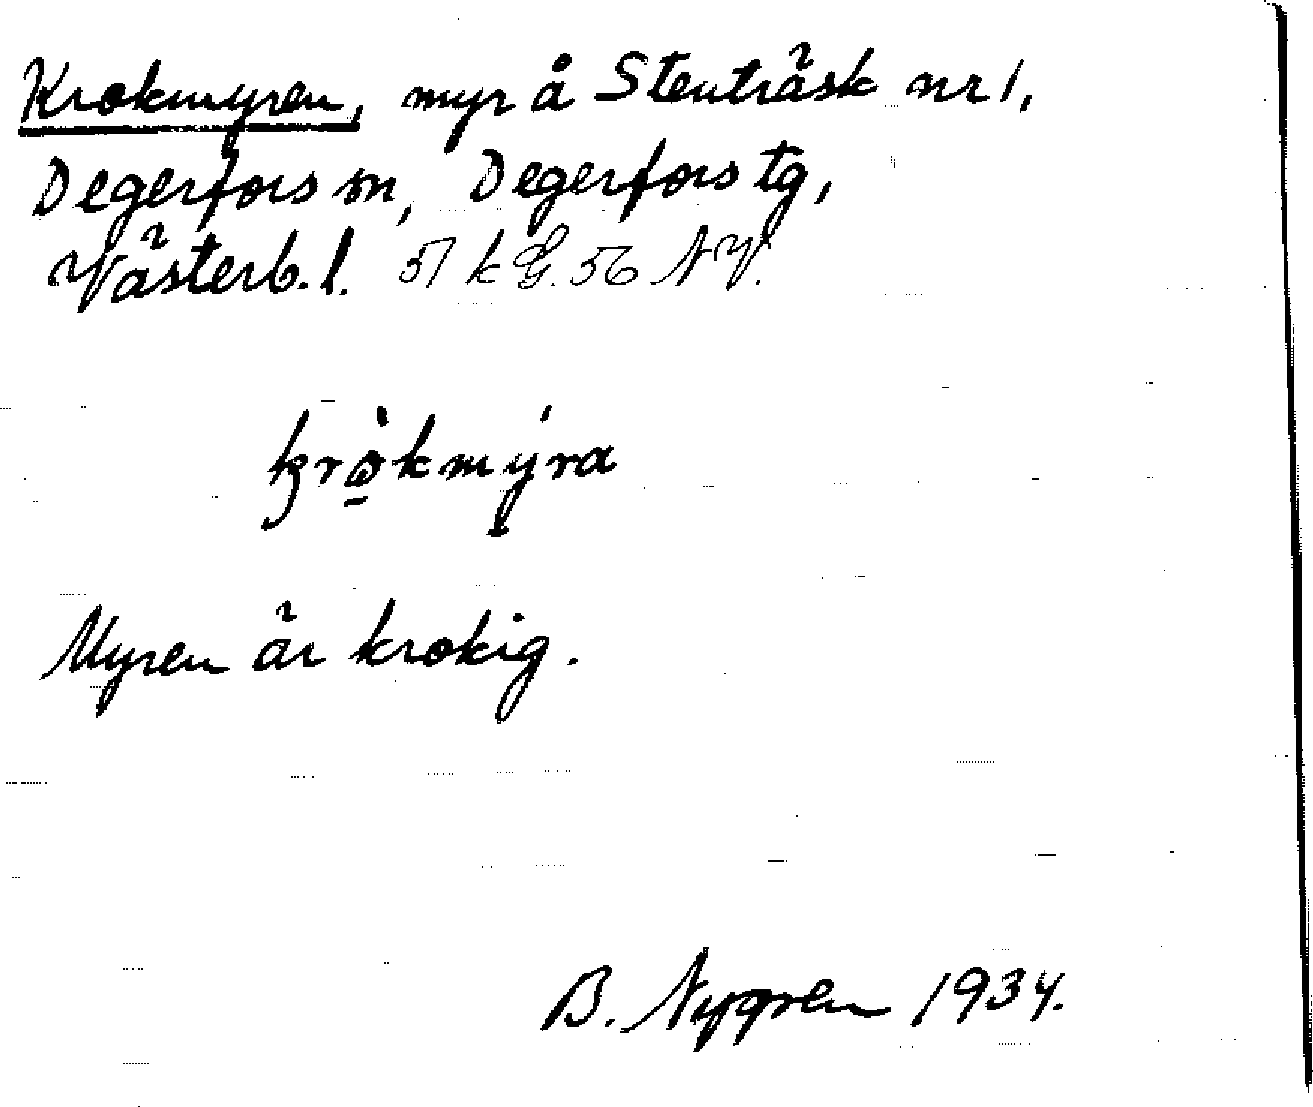 Krokmyren, myr å Stenträsk nr 1,
Degerfors sn, Degerfors tg,
Västerb. l. 51 k G. 56 N Y.
krò̱kmýra
Myren är krokig.
B. Nygren 1934.